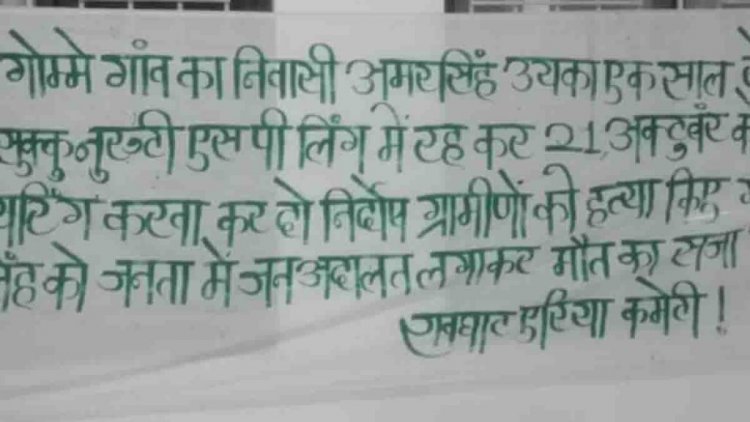 गोम्मे गांव का निवासी अमरसिंह उयका एक साल
नुरुटी एस पी लिंग में रह कर 21 अक्टुबर
करवा कर दो निर्दोष ग्रामीणों की हत्या किए
को जनता में जन अदालत लगाकर मौत का सजा
रावघाट एरिया कमेटी !